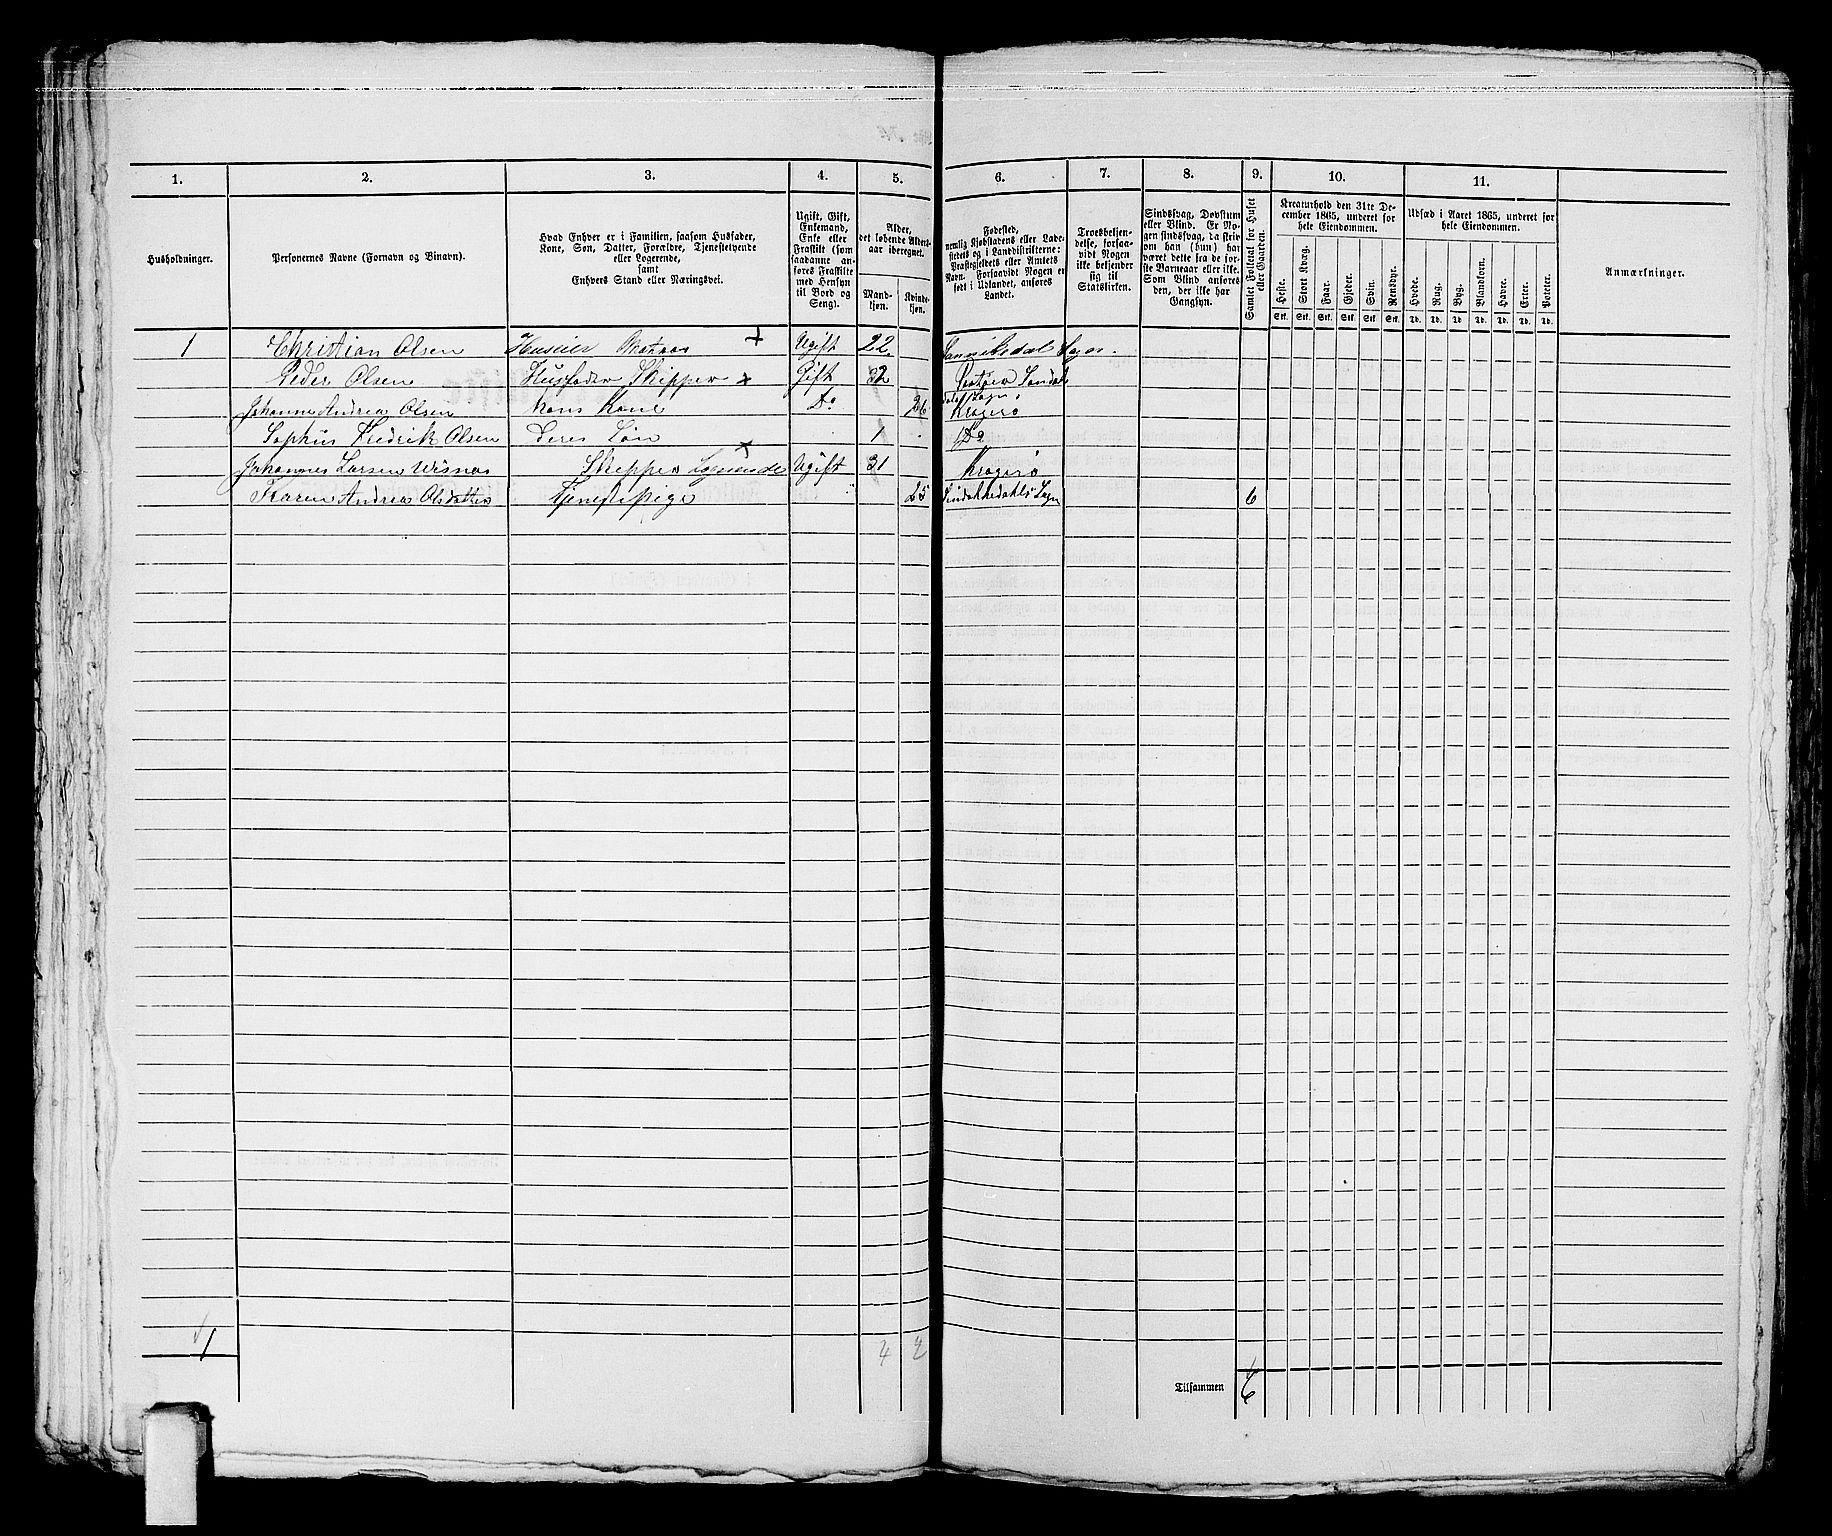 1. 2. 3. 4. 5. 6. 7. 8. 9. 10. 11.
Husholdninger.
Personernes Navne (Fornavn og Binavn).
Hvad Enhver er i Familien, saasom Husfader,
Kone, Søn, Datter, Forældre, Tjenestetyende
eller Logerende,
samt
Enhvers Stand eller Næringsvei.
Ugift, Gift,
Enkemand,
Enke eller
Fraskilt (som
saadanne an-
føres Fraskilte
med Hensyn
til Bord og
Seng).
Alder,
det løbende Alders-
aar iberegnet.
Mand-
kjøn.
Kvinde-
kjøn.
Fødested,
nemlig Kjøbstadens eller Lade-
stedets og i Landdistrikterne:
Præstegjeldets eller Amtets
Navn. Forsaavidt Nogen er
født i Udlandet, anføres
Landet.
Troesbekjen-
delse, forsaa-
vidt Nogen
ikke bekjender
sig til
Statskirken.
Sindssvag, Døvstum
eller Blind. Er No-
gen sindssvag, da skriv
om han (hun) har
været dette fra de før-
ste Barneaar eller ikke.
Som Blind anføres
den, der ikke har
Gangsyn.
Samlet Folketal for Huset
eller Gaarden.
Kreaturhold den 31te De-
cember 1865, underet for
hele Eiendommen.
Heste. Stort Kvæg. Faar. Gjeder. Svin. Rensdyr.
Stk. Stk. Stk. Stk. Stk. Stk.
Udsæd i Aaret 1865, underet for
hele Eiendommen.
Hvede. Rug. Byg. Blandkorn. Havre. Erter. Poteter.
Td. Td. Td. Td. Td. Td. Td.
Anmærkninger.
1 Christian Olsen Huseier + Ugift 22 Sogn.
Peder Olsen Husfader Skipper x Gift 32
Johanne Andrea Olsen hans Kone Do 26 Kragerø
Sophus Fredrik Olsen deres Søn 1 Do
Johannes Larsen Skipper Logerende x Ugift 31 Kragerø
Karen Andrea Olsdatter Tjenestepige " 25 Sogn 6
1 4 2
Tilsammen 6